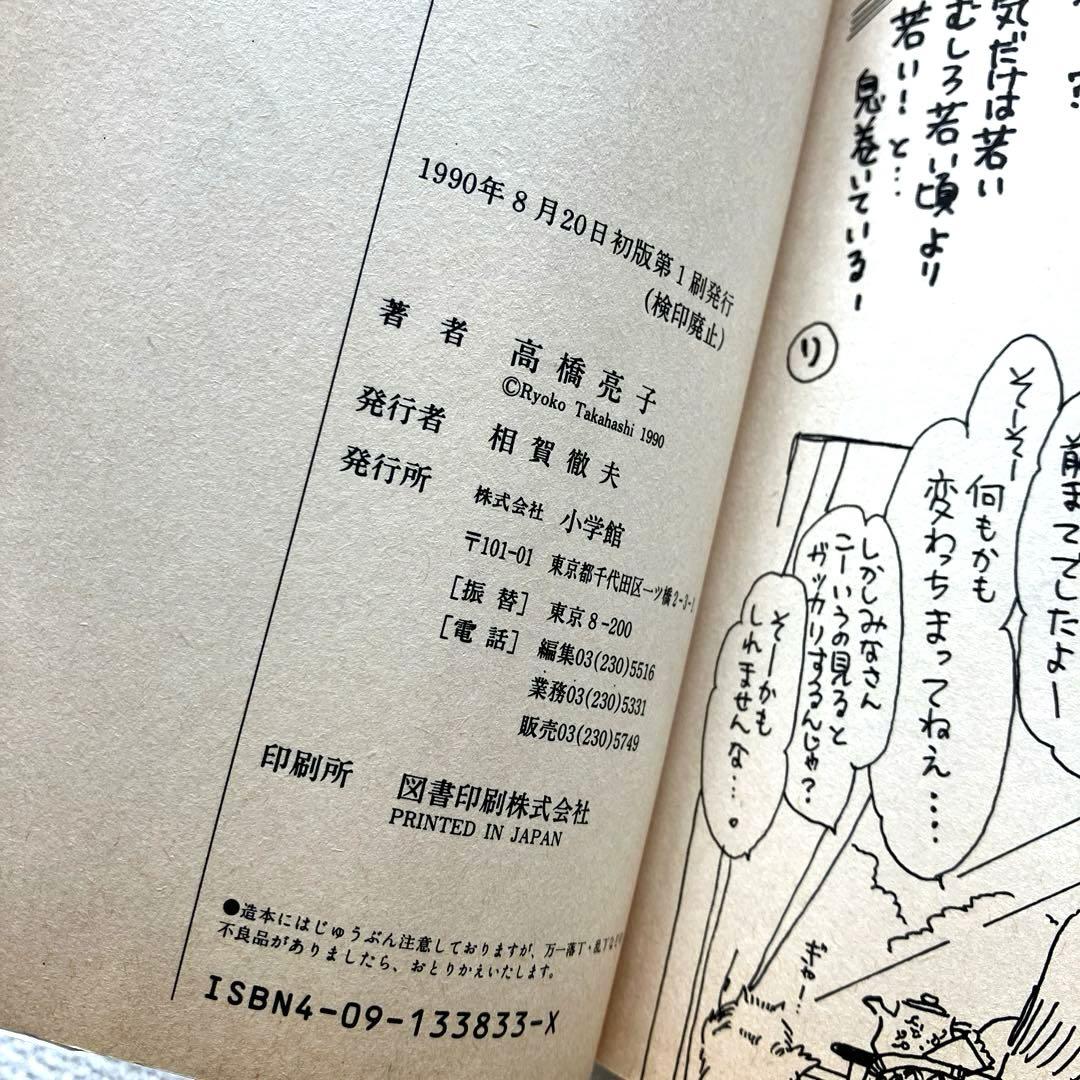 1990年8月20日初版第1刷発行
(検印廃止)
著者 高橋亮子
©Ryoko Takahashi 1990
発行者 相賀徹夫
発行所 株式会社 小学館
〒101-01 東京都千代田区一ツ橋2-3-1
[振替] 東京8-200
[電話] 編集03(230)5516
業務03(230)5331
販売03(230)5749
印刷所 図書印刷株式会社
PRINTED IN JAPAN
●造本にはじゅうぶん注意しておりますが、万一落丁・乱丁など
不良品がありましたら、おとりかえいたします。
ISBN4-09-133833-X
気だけは若い
むしろ若い頃より
若い!と…
息巻いているー
り
前まででしたよー
そーそー
何もかも
変わっちまってねえ……
しかしみなさん
こーいうの見ると
ガッカリするんじゃ?
そーかも
しれませんな…。
ぎゃー…